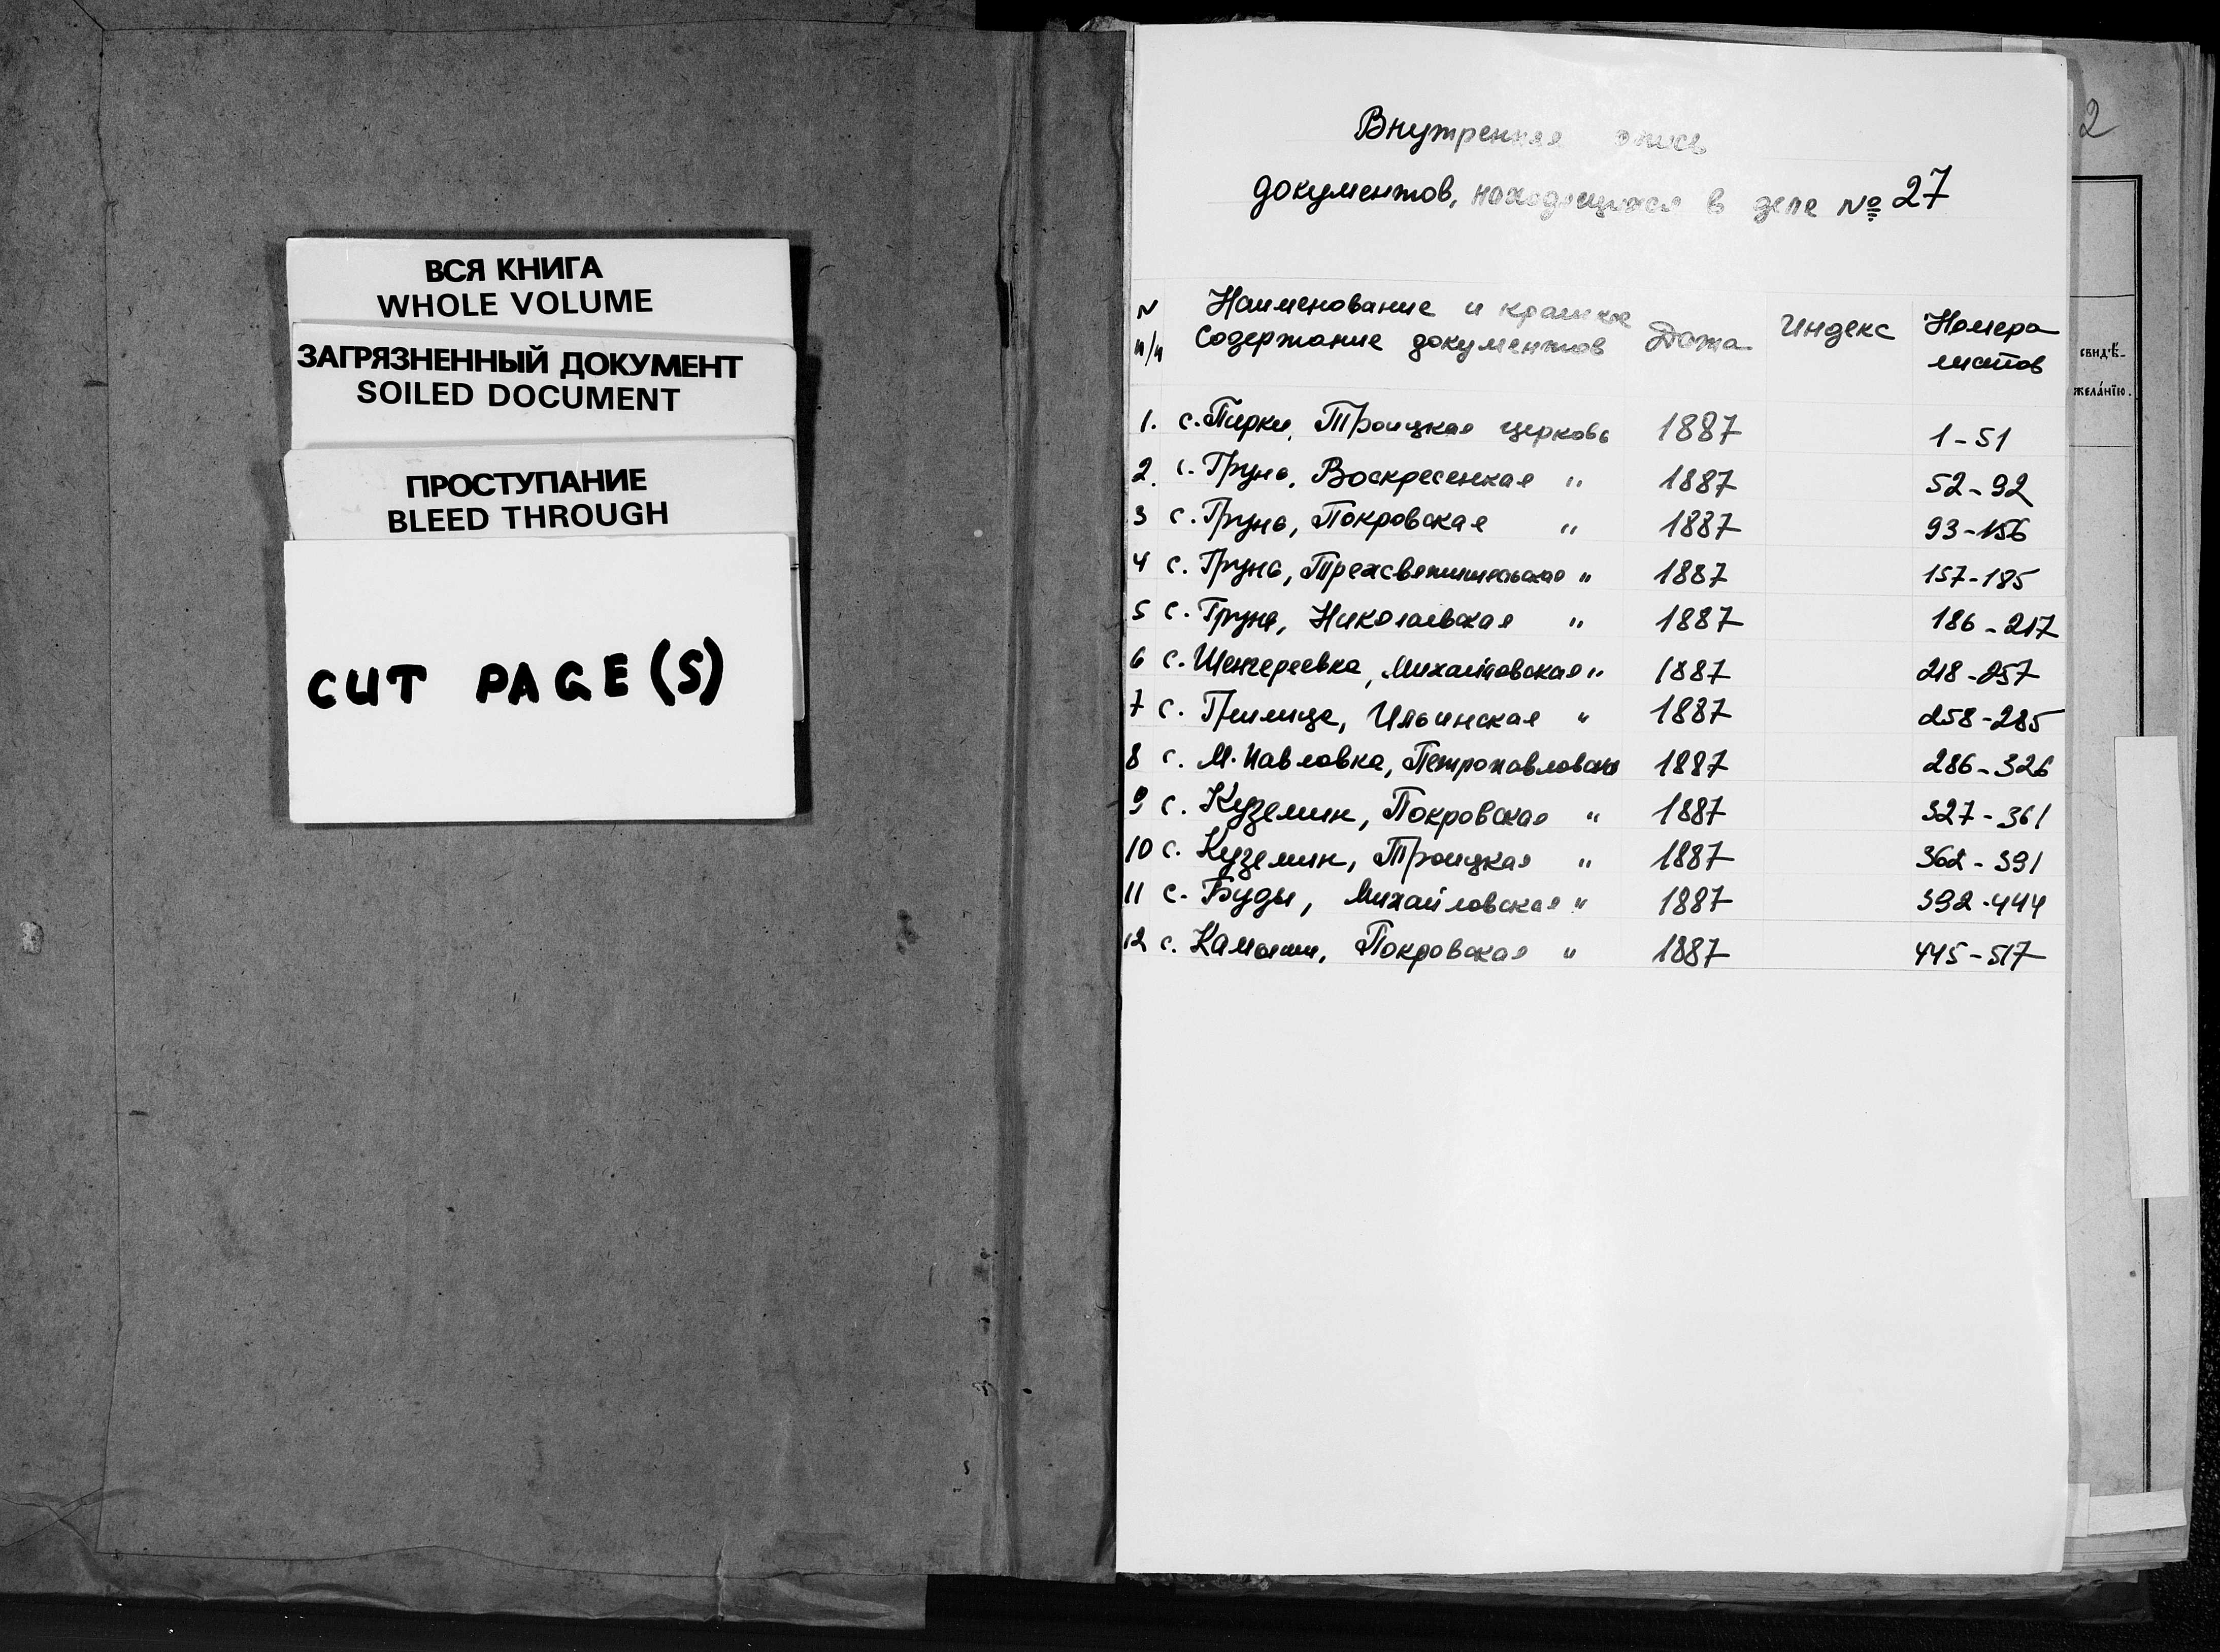 ВСЯ КНИГА
WHOLE VOLUME
ЗАГРЯЗНЕННЫЙ ДОКУМЕНТ
SOILED DOCUMENT
ПРОСТУПАНИЕ
BLEED THROUGH
CUT PAGE(S)
Внутренняя опись
документов, находящихся в деле № 27
N п/п Наименование и краткое содержание документов Дата Индекс Номера листов
1. с. Пирки, Троицкая церковь 1887 1-51
2. с. Грунь, Воскресенкая " 1887 52-92
3 с. Грунь, Покровская " 1887 93-156
4 с. Грунь, Трехсвятительская " 1887 157-185
5 с. Грунь, Николаевская " 1887 186-217
6 с. Шенгереевка, Михайловская " 1887 218-257
7 с. Ильинская " 1887 258-285
8 с. М. Павловка, Петропавловская 1887 286-326
9 с. Куземин, Покровская " 1887 327-361
10 с. Куземин, Троицкая " 1887 362-391
11 с. Буды, Михайловская " 1887 392-444
12 с. Камыши, Покровская " 1887 445-517
2
СВИДѢ-
ЖЕЛАНІЮ.